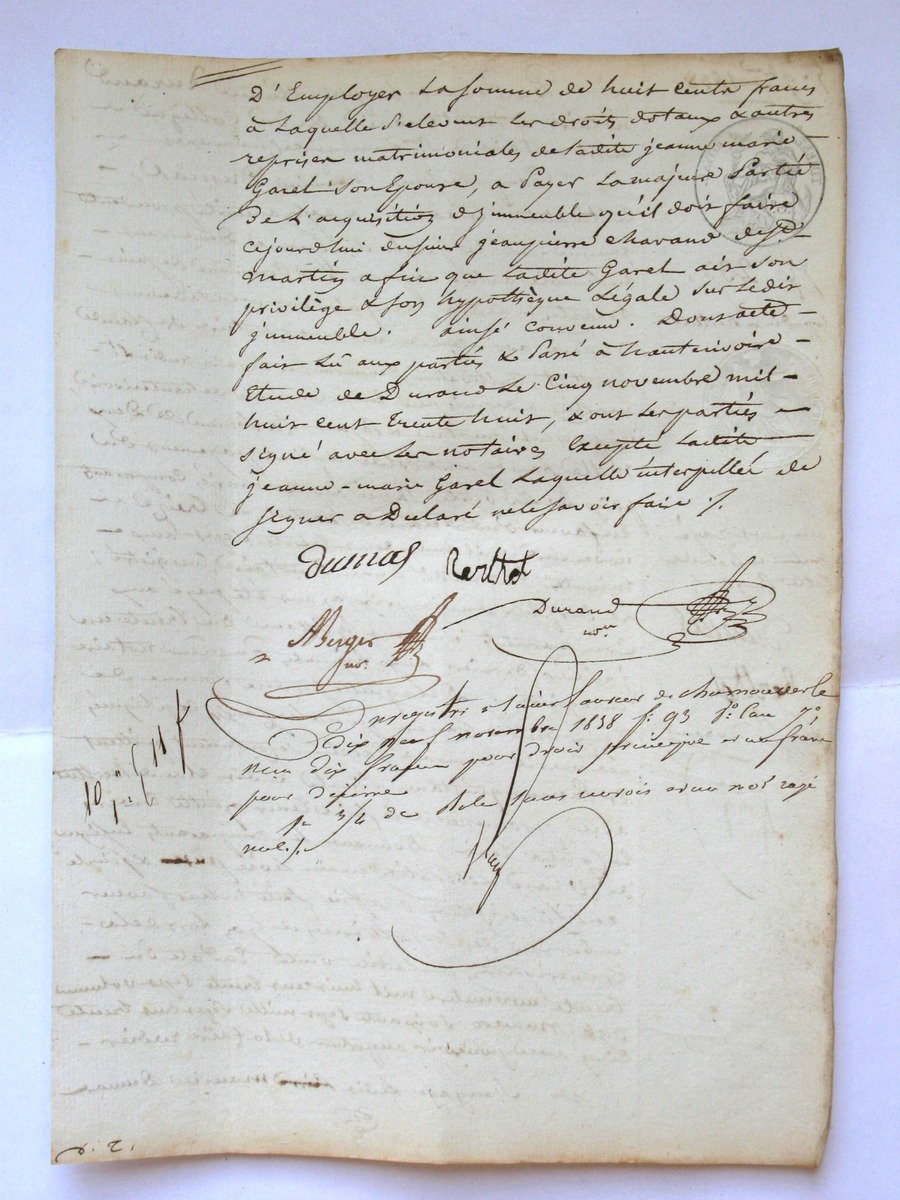 D'Employer La Somme de huit cents francs
à Laquelle S'elevent les droits dotaux & autres
reprises matrimoniales de ladite jeanne marie
Garel Son Epouse, a Payer La majeure Partie
De L'acquisition d'jmmeuble qu'il doit faire
cejourdhui du sieur jeanpierre chavand de St
martin afin que Ladite Garel ait son
privilège & son hypothèque Légale sur ledit
jmmeuble. ainsi convenu. Dont acte
fait Lû aux parties & Passé à hauterivoire
Etude de Durand Le Cinq novembre mil
huit cent trente huit, & ont Les parties
signé avec Les notaires Excepté Ladite
jeanne-marie Garel Laquelle interpellée de
signer a Déclaré ne le savoir faire ./.
Dumas Berthet
Durand
nore
ABerger
no.
Enregistré à Saint Laurent de chamousset le
Dix neuf novembre 1838 f. 93 Ro. Case
dix francs pour droit principal et un franc
pour decime
3/4 de Role Sans renvois et un mot rayé
nul ./.